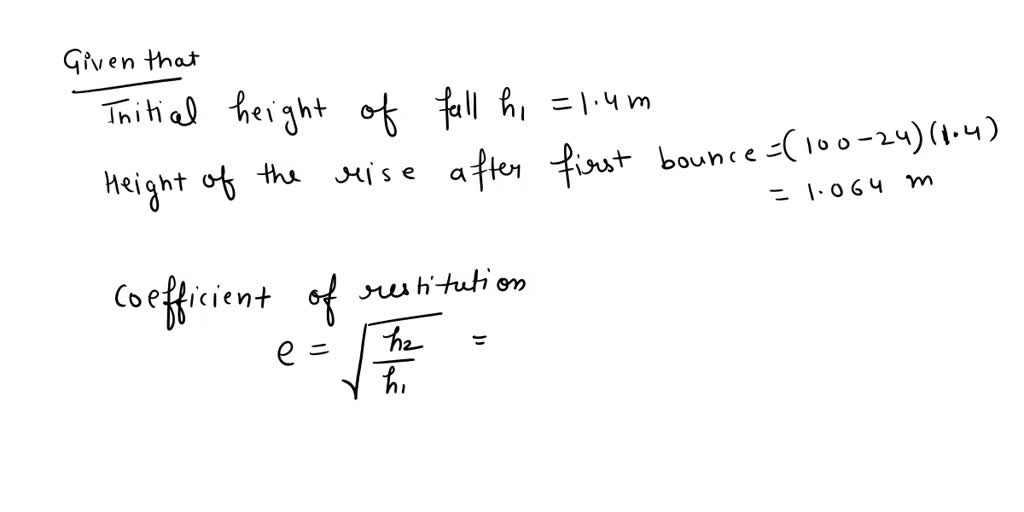 Given that
Initial height of fall h₁ = 1.4 m
Height of the rise after first bounce = (100 - 24)(1.4)
= 1.064 m
Coefficient of restitution
e = √(h₂/h₁) =